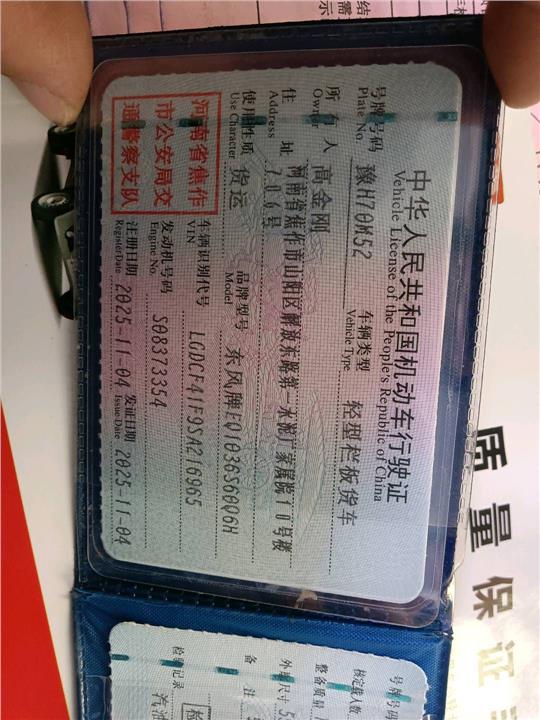 中华人民共和国机动车行驶证
Vehicle License of the People's Republic of China
号牌号码 豫H70M52 车辆类型 轻型栏板货车
Plate No. Vehicle Type
所有人 高金刚
Owner
住址 河南省焦作市山阳区解放东路第一水泥厂家属院10号楼
Address 706号
使用性质 货运 品牌型号 东风牌EQ1036S60Q6H
Use Character Model
河南省焦作
市公安局交
通警察支队
车辆识别代号 LGDCF41F9SA216965
VIN
发动机号码 S08373354
Engine No.
注册日期 2025-11-04 发证日期 2025-11-04
Register Date Issue Date
号牌号码
核定载人数
整备质量
外廓尺寸 5
备注
检验记录
汽油
检
质量保证